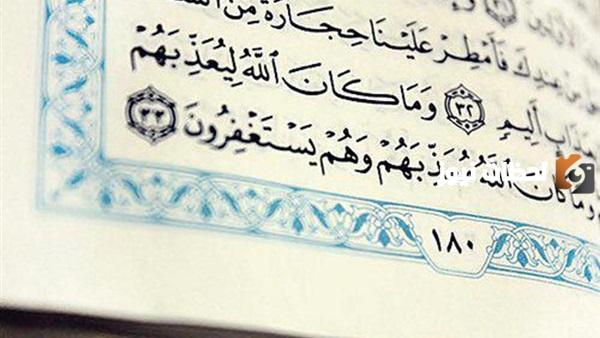 مِنْ عِندِكَ فَأَمْطِرْ عَلَيْنَا حِجَارَةً مِّنَ
بِعَذَابٍ أَلِيمٍ ٣٢ وَمَا كَانَ ٱللَّهُ لِيُعَذِّبَهُمْ
وَمَا كَانَ ٱللَّهُ مُعَذِّبَهُمْ وَهُمْ يَسْتَغْفِرُونَ ٣٣
نيوز
١٨٠